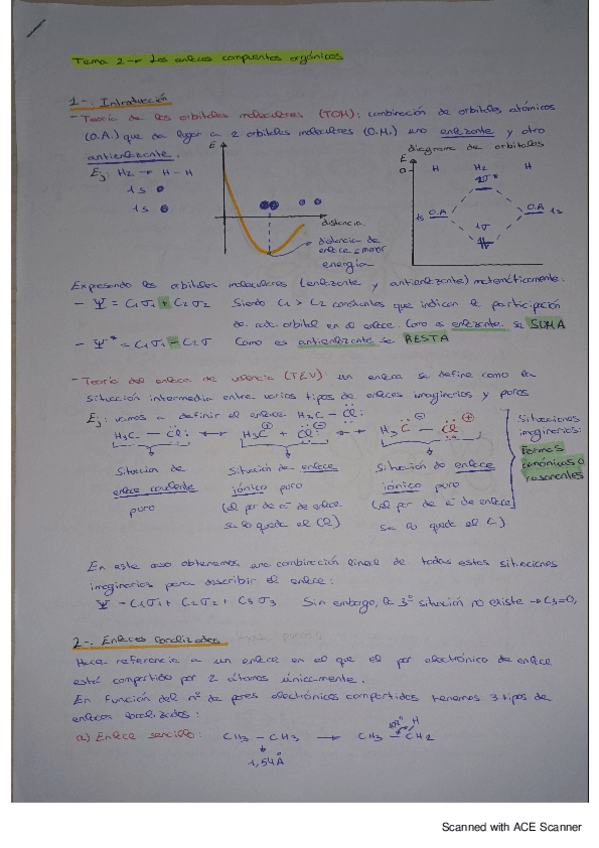 - Tema 2 → Los enlaces compuestos orgánicos
1-. Introducción
- Teoría de los orbitales moleculares (TOM): combinación de orbitales atómicos
(O.A.) que da lugar a 2 orbitales moleculares (O.M.) uno enlazante y otro
antienlazante.
Ej: H₂ → H - H
1s
1s
E
distancia
distancia de
enlace = menor
energía
diagrama de orbitales
E
0
H H₂ H
2σ*
1s O.A O.A 1s
1σ
Expresando los orbitales moleculares (enlazante y antienlazante) matemáticamente:
- Ψ = C₁σ₁ + C₂σ₂ Siendo C₁ > C₂ constantes que indican la participación
de cada orbital en el enlace. Como es enlazante se SUMA
- Ψ* = C₁σ₁ - C₂σ Como es antienlazante se RESTA
- Teoría del enlace de valencia (TEV) un enlace se define como la
situación intermedia entre varios tipos de enlaces imaginarios y puros
Ej: vamos a definir el enlace H₃C - Cl:
H₃C - Cl: ↔ H₃C⊕ + Cl:⊖ ↔ H₃C⊖ - Cl⊕
Situación de enlace covalente puro
Situación de enlace iónico puro
(el par de e⁻ de enlace se lo queda el Cl)
Situación de enlace iónico puro
(el par de e⁻ de enlace se lo queda el C)
Situaciones
imaginarias:
Formas
canónicas o
resonantes
En este caso obtenemos una combinación lineal de todas estas situaciones
imaginarias para describir el enlace:
Ψ = C₁σ₁ + C₂σ₂ + C₃σ₃ Sin embargo, la 3ª situación no existe → C₃=0,
2-. Enlaces localizados
Hace referencia a un enlace en el que el par electrónico de enlace
está compartido por 2 átomos únicamente.
En función del nº de pares electrónicos compartidos tenemos 3 tipos de
enlaces localizados:
a) Enlace sencillo: CH₃ - CH₃ → CH₃ - CH₂
H
1,54Å
Scanned with ACE Scanner